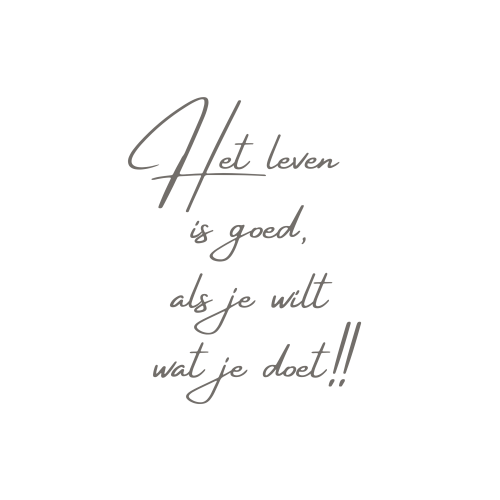 Het leven
is goed,
als je wilt
wat je doet!!